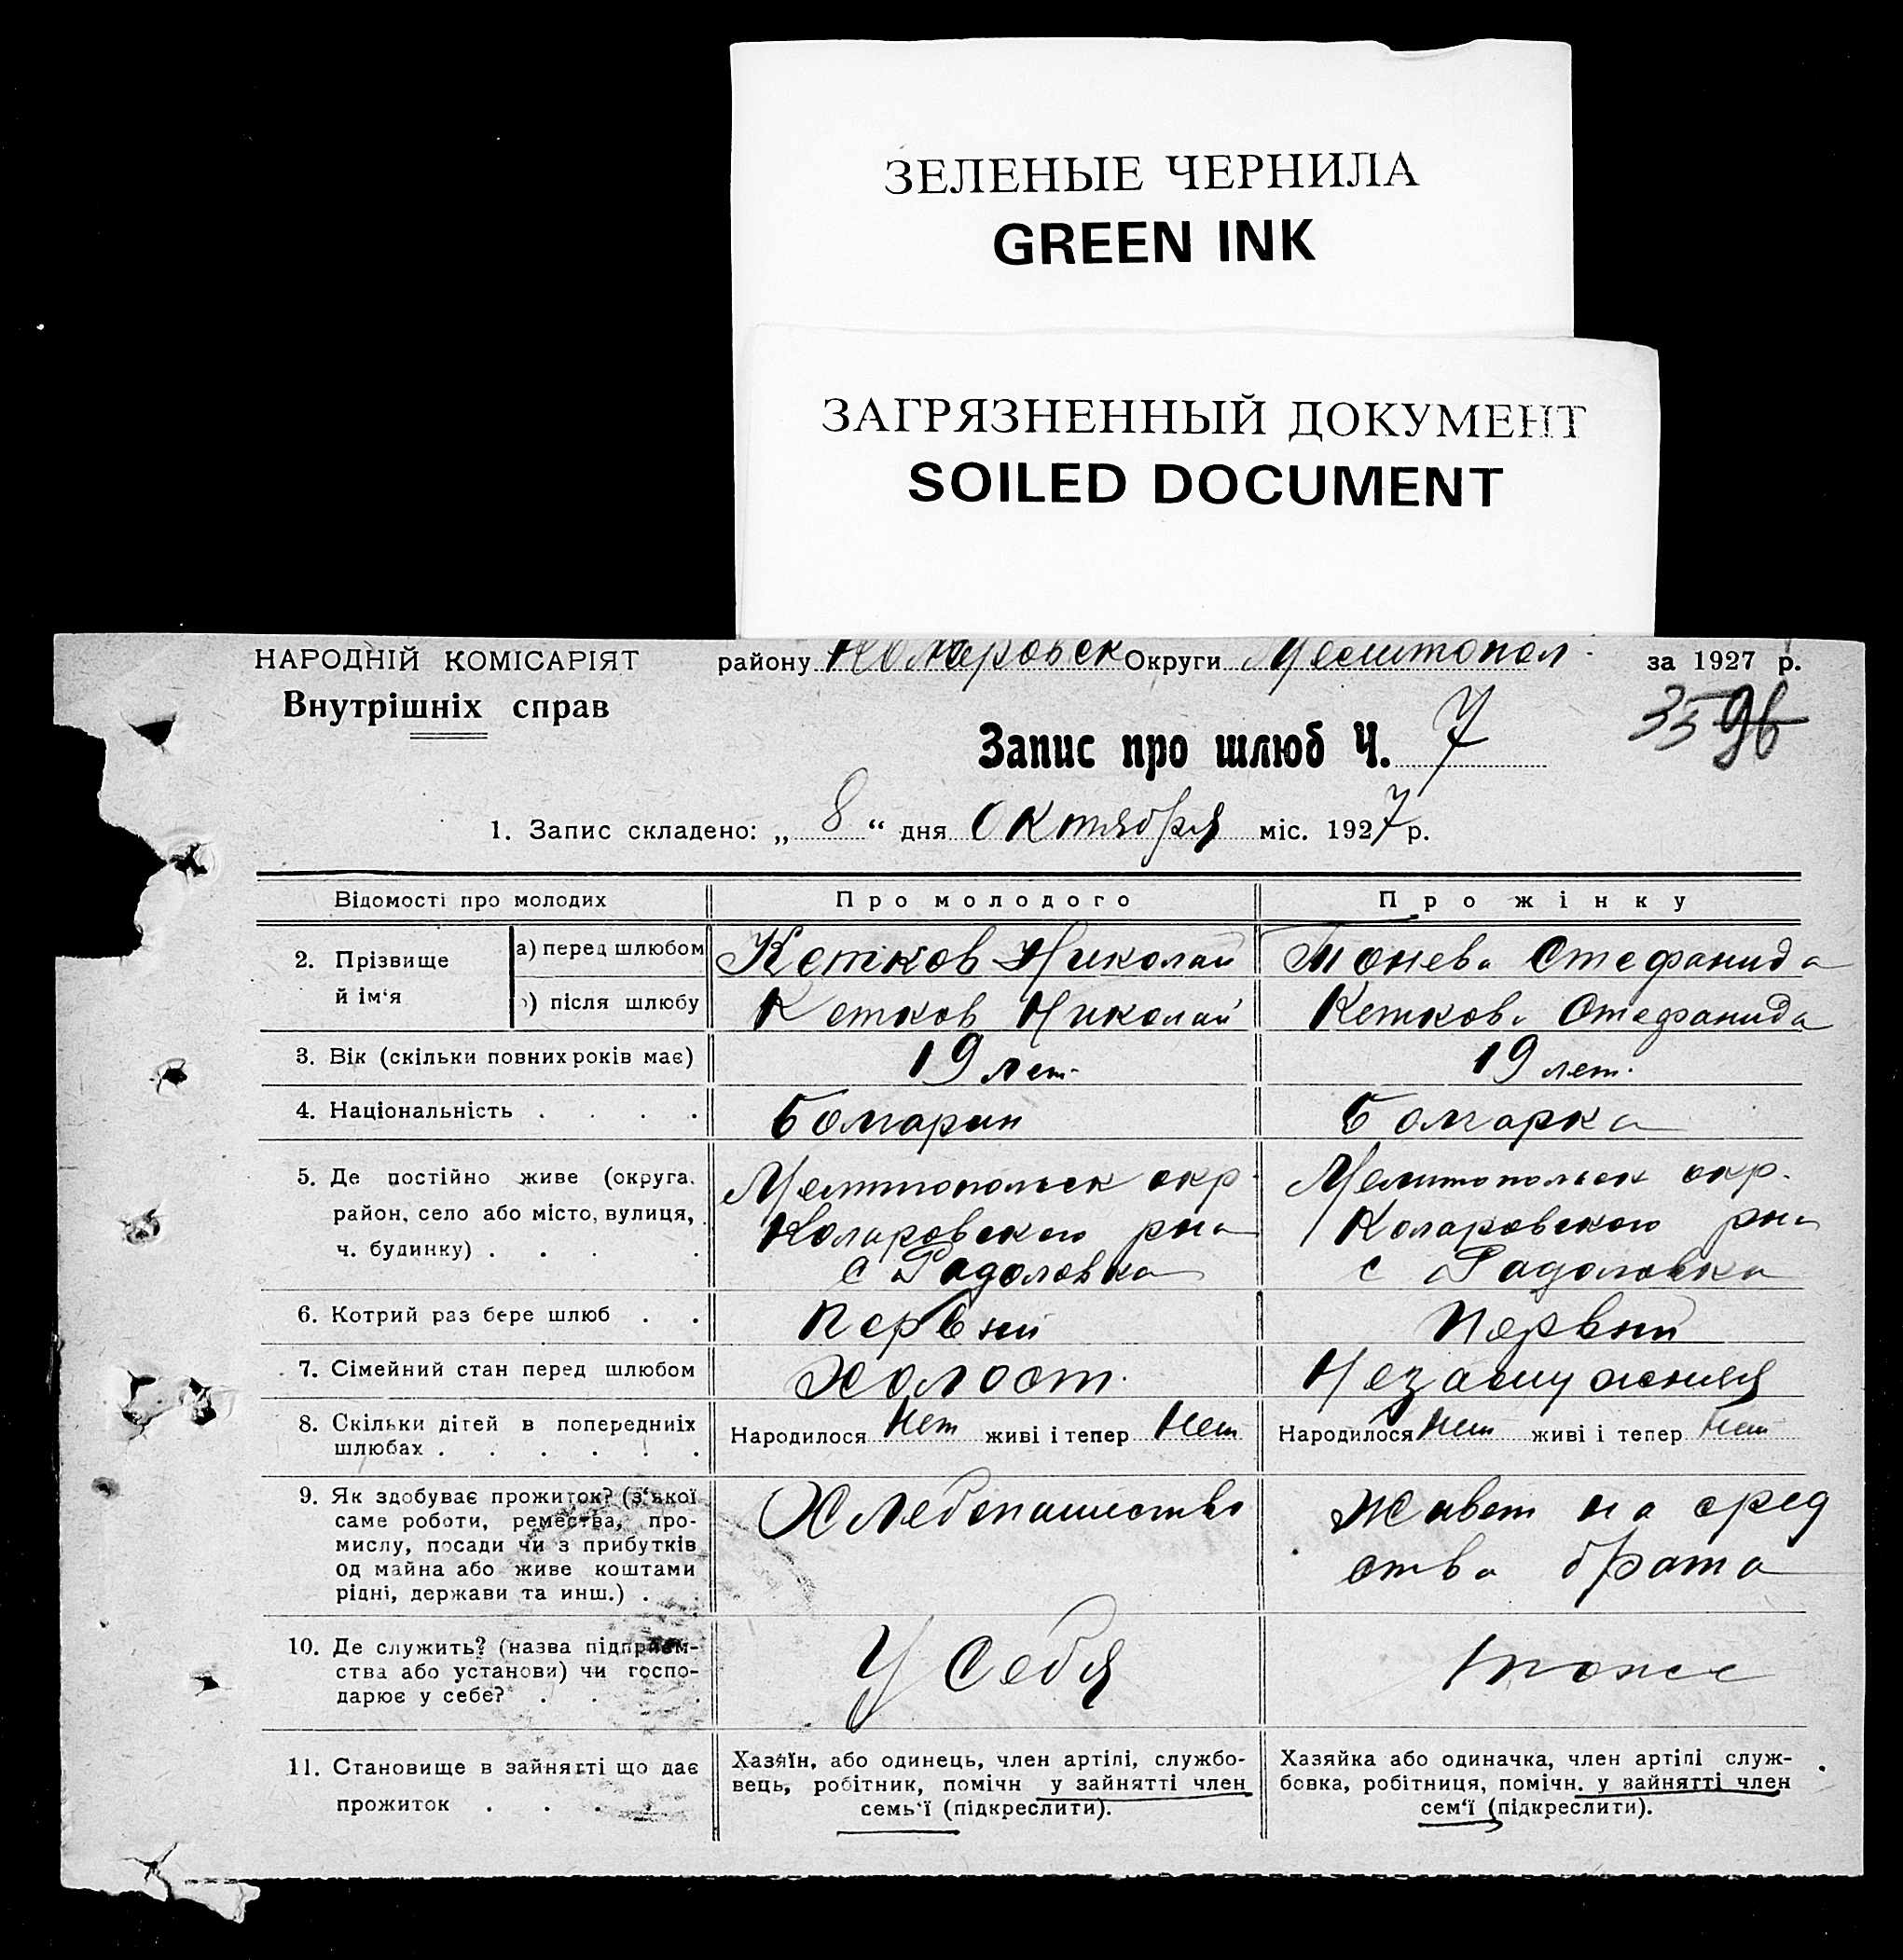 ЗЕЛЕНЫЕ ЧЕРНИЛА
GREEN INK
ЗАГРЯЗНЕННЫЙ ДОКУМЕНТ
SOILED DOCUMENT
НАРОДНІЙ КОМІСАРІЯТ
Внутрішніх справ
району Коларовск Округи Мелитопол. за 1927 р.
Запис про шлюб Ч. 7
1. Запис складено: „ 8 “ дня Октября міс. 1927 р.
Відомості про молодих Про молодого Про жінку
2. Прізвище й ім‘я
а) перед шлюбом Кетков Николай Тонева Стефанида
) після шлюбу Кетков Николай Кеткова Стефанида
3. Вік (скільки повних років має) 19 лет. 19 лет.
4. Національність . . . . Болгарин Болгарка
5. Де постійно живе (округа,
район, село або місто, вулиця,
ч. будинку) . . . .
Мелитопольск окр.
Коларовского рна
с Радоловка
Мелитопольск окр.
Коларовского рна
с Радоловка
6. Котрий раз бере шлюб . . Первый Первый
7. Сімейний стан перед шлюбом Холост. Незамужняя
8. Скільки дітей в попередниіх
шлюбах . . . . . .
Народилося Нет живі і тепер Нет
Народилося Нет живі і тепер Нет
9. Як здобуває прожиток? (з‘якої
саме роботи, ремества, про-
мислу, посади чи з прибутків
од майна або живе коштами
рідні, держави та инш.) .
Хлебопашество
Живет на сред
ства брата
10. Де служить? (назва підприєм-
ства або установи) чи госпо-
дарює у себе? . . .
У Себя
тоже
11. Становище в зайнятті що дає
прожиток . . . .
Хазяїн, або одинець, член артілі, службо-
вець, робітник, помічн у зайнятті член
семь‘ї (підкреслити).
Хазяйка або одиначка, член артілі служ-
бовка, робітниця, помічн. у зайнятті член
сем‘ї (підкреслити).